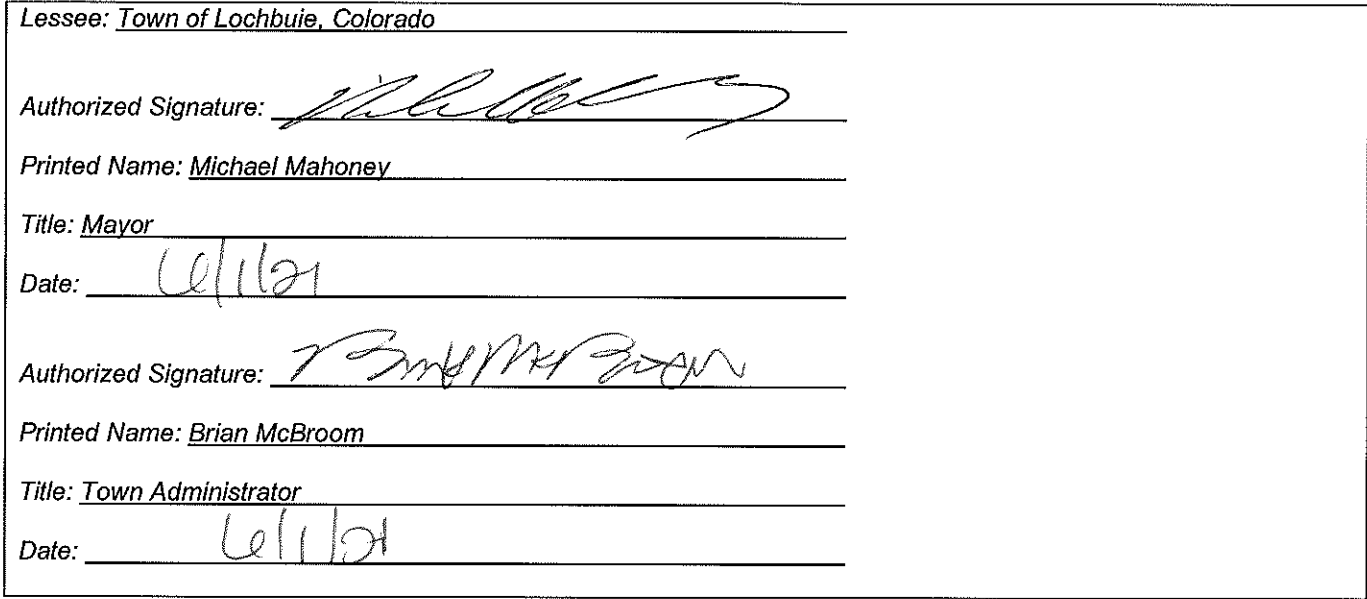 Lessee: Town of Lochbuie, Colorado
Authorized Signature:
Printed Name: Michael Mahoney
Title: Mayor
Date: 6/1/21
Authorized Signature:
Printed Name: Brian McBroom
Title: Town Administrator
Date: 6/1/21